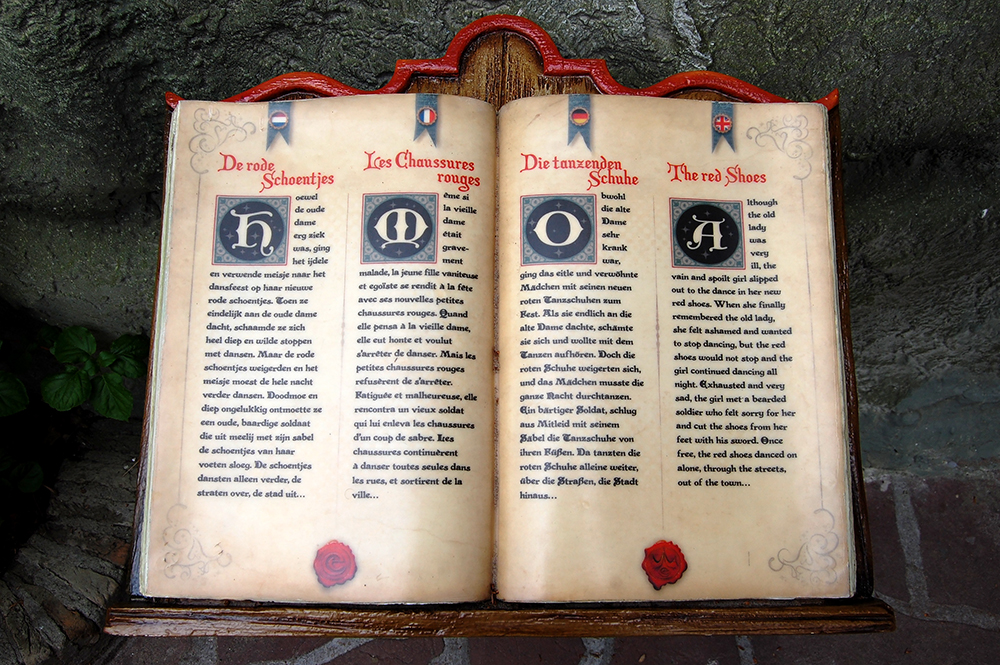 De rode
Schoentjes
Hoewel
de oude
dame
erg ziek
was, ging
het ijdele
en verwende meisje naar het
dansfeest op haar nieuwe
rode schoentjes. Toen ze
eindelijk aan de oude dame
dacht, schaamde ze zich
heel diep en wilde stoppen
met dansen. Maar de rode
schoentjes weigerden en het
meisje moest de hele nacht
verder dansen. Doodmoe en
diep ongelukkig ontmoette ze
een oude, baardige soldaat
die uit meelij met zijn sabel
de schoentjes van haar
voeten sloeg. De schoentjes
dansten alleen verder, de
straten over, de stad uit...
Les Chaussures
rouges
Même si
la vieille
dame
était
grave-
ment
malade, la jeune fille vaniteuse
et egoïste se rendit à la fête
avec ses nouvelles petites
chaussures rouges. Quand
elle pensa à la vieille dame,
elle eut honte et voulut
s'arrêter de danser. Mais les
petites chaussures rouges
refusèrent de s'arrêter.
Fatiguée et malheureuse, elle
rencontra un vieux soldat
qui lui enleva les chaussures
d'un coup de sabre. Les
chaussures continuèrent
à danser toutes seules dans
les rues, et sortirent de la
ville...
Die tanzenden
Schuhe
Obwohl
die alte
Dame
sehr
krank
war,
ging das eitle und verwöhnte
Mädchen mit seinen neuen
roten Tanzschuhen zum
Fest. Als sie endlich an die
alte Dame dachte, schämte
sie sich und wollte mit dem
Tanzen aufhören. Doch die
roten Schuhe weigerten sich,
und das Mädchen musste die
ganze Nacht durchtanzen.
Ein bärtiger Soldat, schlug
aus Mitleid mit seinem
Säbel die Tanzschuhe von
ihren Füßen. Da tanzten die
roten Schuhe alleine weiter,
über die Straßen, die Stadt
hinaus...
The red Shoes
Although
the old
lady
was
very
ill, the
vain and spoilt girl slipped
out to the dance in her new
red shoes. When she finally
remembered the old lady,
she felt ashamed and wanted
to stop dancing, but the red
shoes would not stop and the
girl continued dancing all
night. Exhausted and very
sad, the girl met a bearded
soldier who felt sorry for her
and cut the shoes from her
feet with his sword. Once
free, the red shoes danced on
alone, through the streets,
out of the town...